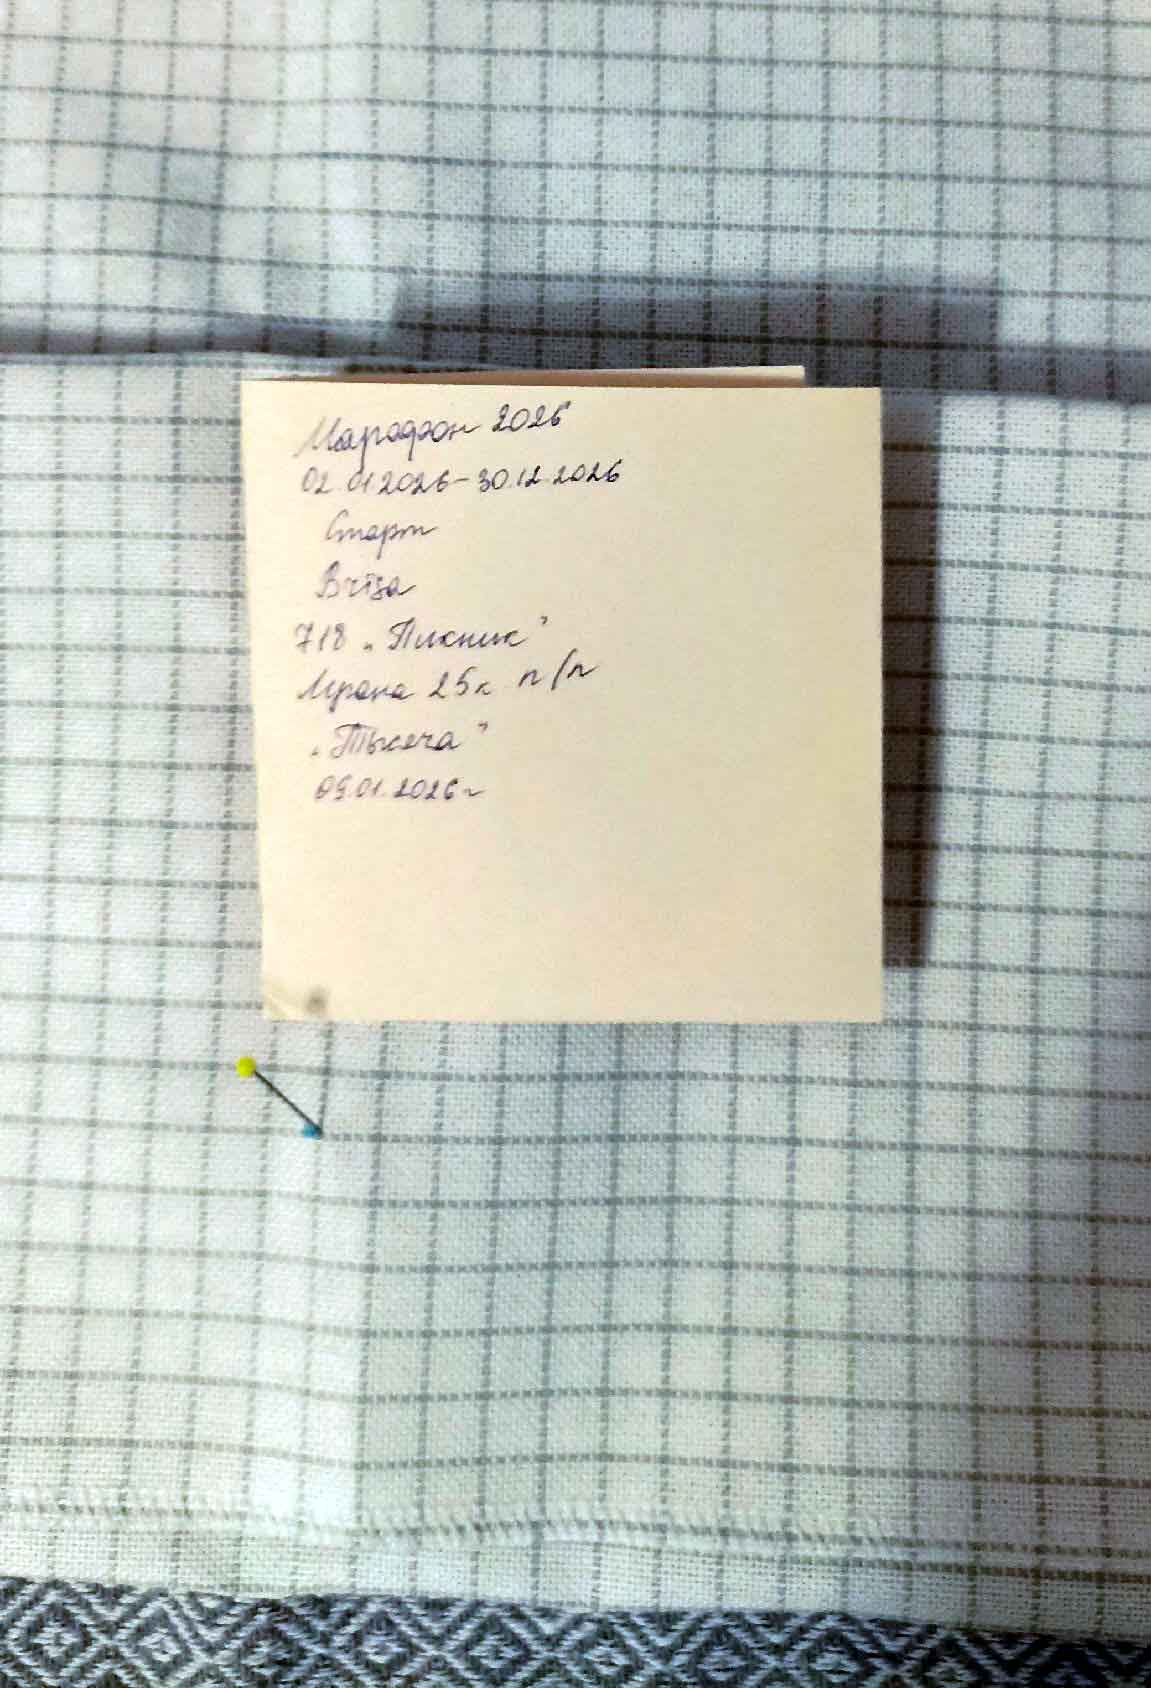 Марафон 2026
02.01.2026-30.12.2026
Старт
718 „Пикник"
Мурано 25к п/п
„Тысяча"
09.01.2026г